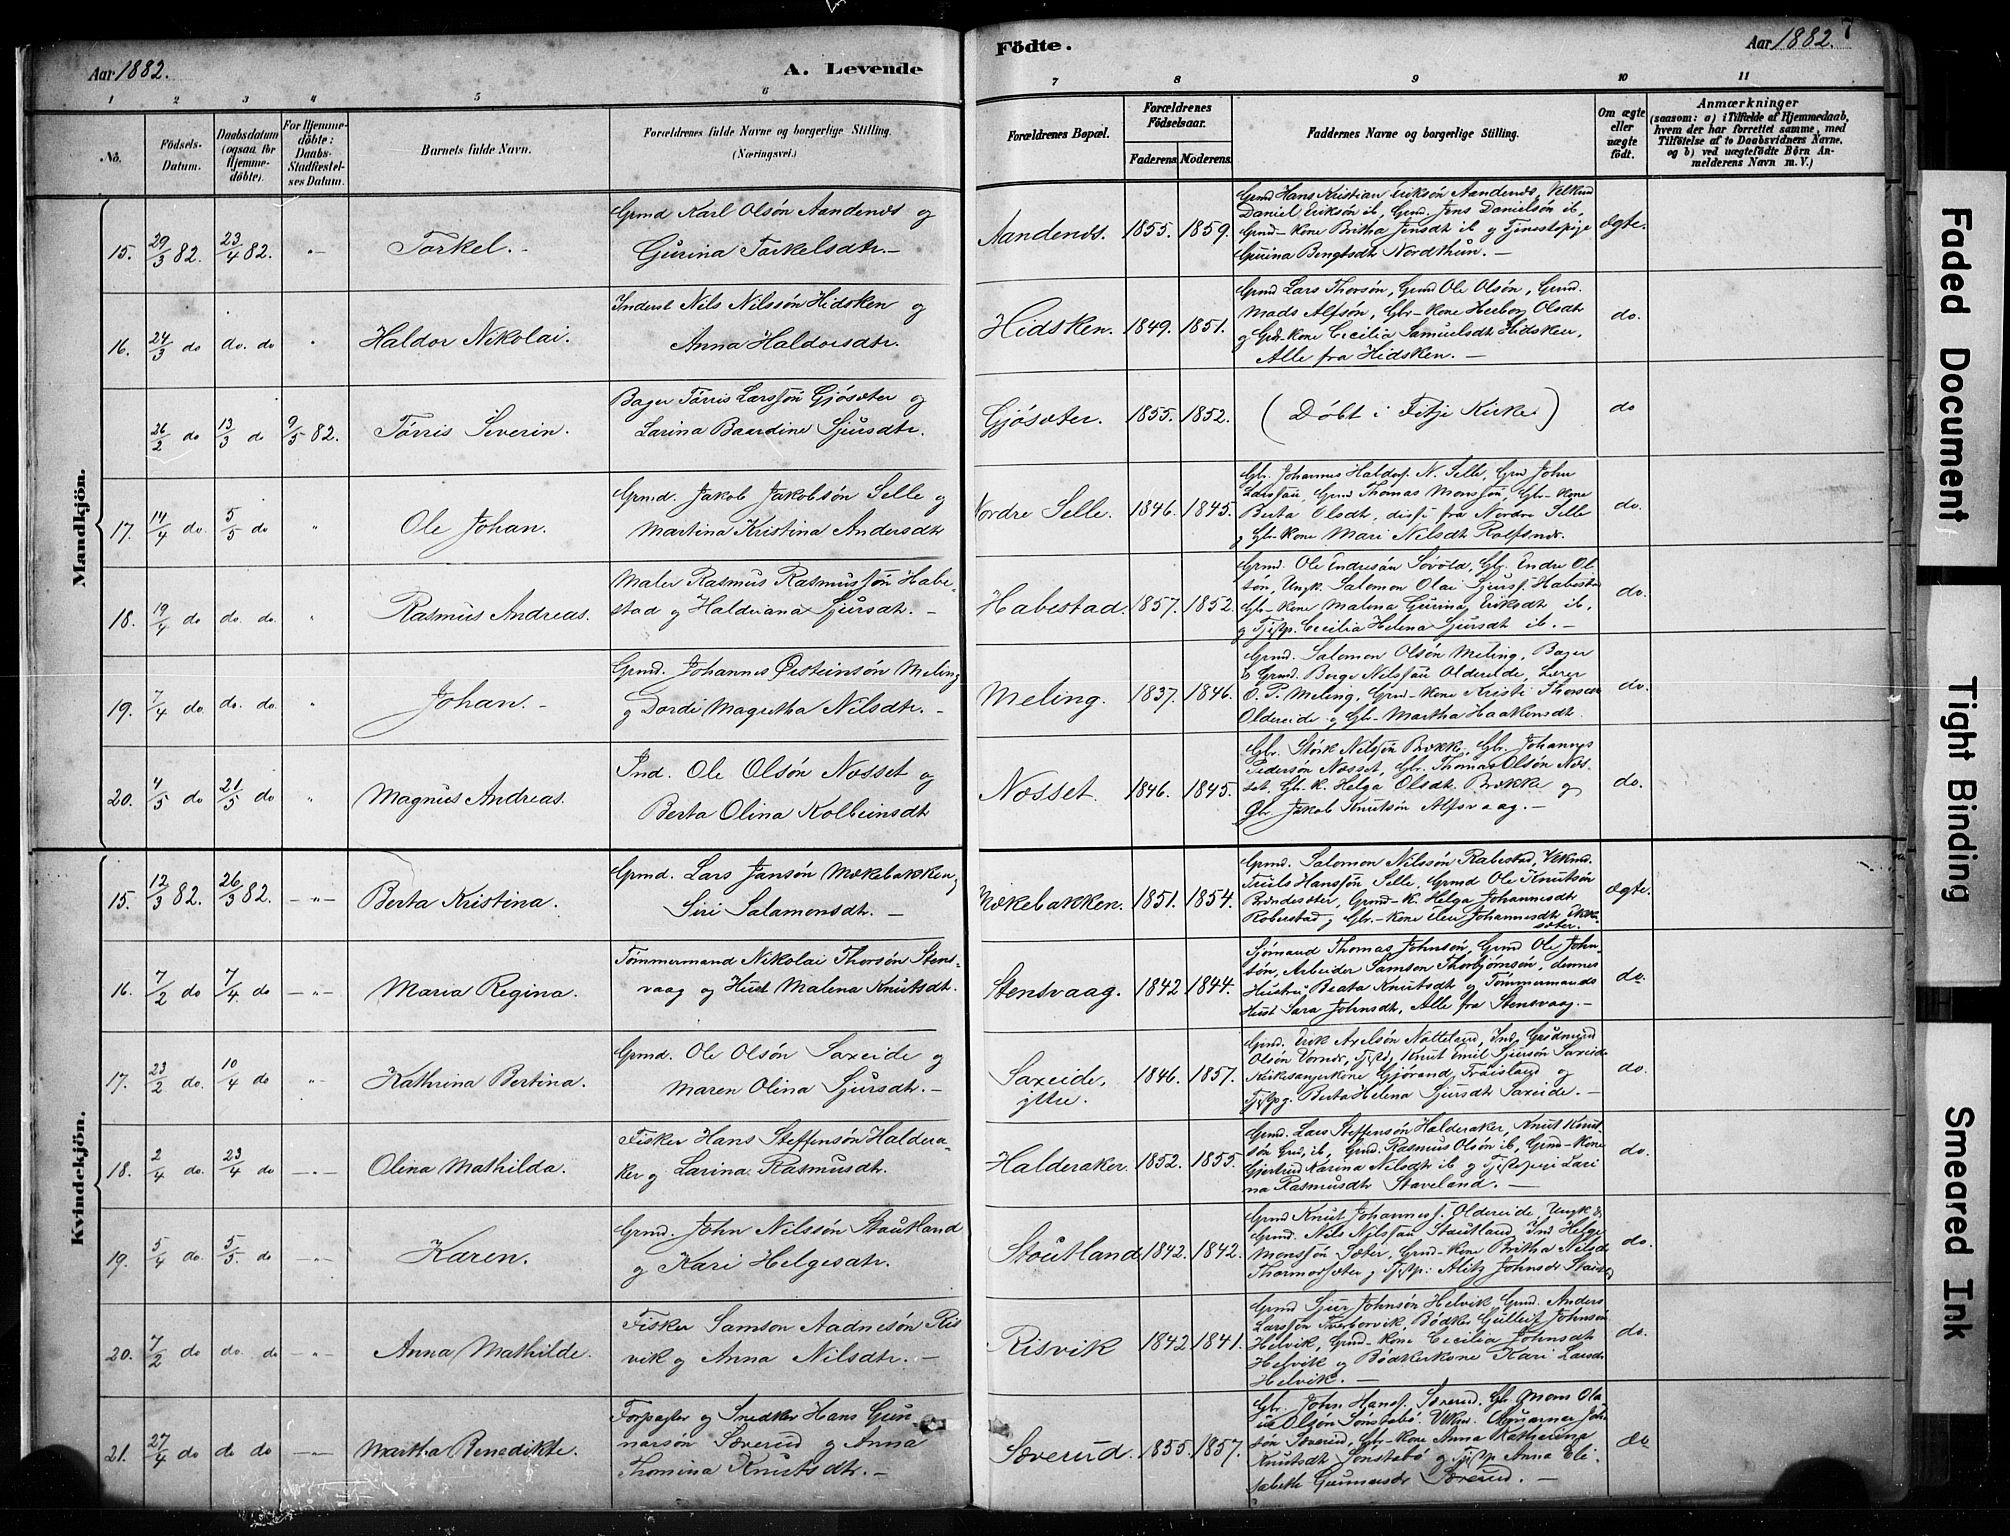 Aar 1882.
A. Levende
Födte.
Aar 1882.
7
1 2 3 4 5 6 7 8 9 10 11
No.
Födsels-
Datum.
Daabsdatum
(ogsaa for
Hjemme-
döbte).
For Hjemme-
döbte:
Daabs-
Stadfæstel-
ses Datum.
Barnets fulde Navn.
Forældrenes fulde Navne og borgerlige Stilling.
(Næringsvei.)
Forældrenes Bopæl.
Forældrenes
Födselsaar.
Faderens. Moderens.
Faddernes Navne og borgerlige Stilling.
Om ægte
eller
uægte
födt.
Anmærkninger
(saasom: a) i Tilfælde af Hjemmedaab,
hvem der har forrettet samme, med
Tilföielse af to Daabsvidners Navne,
og b) ved uægtefödte Börn An-
melderens Navn m. V.)
Mandkjön.
15. 29/3 82. 23/4 82. -"- Torkel. -
Grmd Karl Olsön Aandends og
Gurina Torkelsdtr. -
Aandends. 1855. 1859.
Grmd Hans Kristian Eriksön Aandends,
Daniel Eriksön ib, Grmd. Jens Danielsön ib,
Grmd-kone Britha Jensdt ib og Tjenestepige
Gurina Bengtsdt Nordthun. -
ægte.
16. 24/3 do do. do " Haldor Nikolai.
Inderst Nils Nilssön Hidsken og
Anna Haldorsdtr.
Hidsken. 1849. 1851.
Grmd Lars Thorsön, Grmd Ole Olsön, Grmd.
Mads Alfsön, Gbr-kone Herborg Olsdt
og Grd-kone Cecilia Samuelsdt Hidsken,
Alle fra Hidsken. -
do.
26/2 do 13/3 do 9/5 82. Tørris Severin.
Bager Tørris Larssön Gjøsæter og
Larina Baardine Sjursdtr.
Gjøsæter. 1855. 1852.
(Døbt i Fitje Kirke)
do
17. 14/4 do. 5/5 do " Ole Johan.
Grmd. Jakob Jakobsön Selle og
Martina Kristina Andersdtr
Nordre Selle. 1846. 1845.
Gbr. Johannes Haldorf. N. Selle, Grmd John
Larssön, Grmd Thomas Monssön, Gbr-kone
Berta Olsdt, disse fra Nordre Selle
og Gbr-kone Mari Nilsdt Rolfsnds.
do.
18. 19/4 do do. do. " Rasmus Andreas.
Maler Rasmus Rasmussön Habe-
stad og Haldriana Sjursdtr. -
Habestad. 1857. 1852.
Grmd. Ole Endresön Søvold, Gbr Endre Ol-
sön, Ungk. Salomon Olai Sjursf. Habestad
Gbr-kone Malena Gurina Eriksdt ib,
og Tjstp. Cecilia Helena Sjursdt ib. -
do.
19. 7/4 do. do. do. " Johan. -
Grmd. Johannes Østeinsön Meling
og Dordi Magretha Nilsdtr. -
Meling. 1837. 1846.
Grmd. Salomon Olsön Meling, Bager
& Grmd. Børge Nilssön Oldereide, Lærer
O. P. Meling, Grmd-kone Kristi Thorsen
Oldereide og Gbr- Martha Haakensdt.
do.
20. 4/5 do 21/5 do " Magnus Andreas.
Ind. Ole Olsön Næsset og
Berta Olina Kolbeinsdt
Næsset. 1846. 1845.
Gbr. Størk Nilssön Brække, Gbr. Johannes
Pedersön Næsset, Gbr. Thomas Olsön Næs-
set, Gbr. k. Helga Olsdt. Brække og
Gbr Jakob Knutsön Alfsvaag. -
do.
Kvindekjön.
15. 12/3 82. 26/3 82. -"- Berta Kristina.
Grmd. Lars Jansön Mækebakken og
Siri Salamonsdt. -
Mækebakken. 1851. 1854.
Grmd. Salomon Nilssön Rabestad,
Hanssön Selle, Grmd Ole Knutsön
Grmd-k. Helga Johannesdt
og Gbr-kone Johannesdt
ægte.
16. 7/2 do 7/4 do -"- Maria Regina.
Tømmermand Nikolai Thorsön Stens-
vaag og Hust Malena Knutsdt.
Stensvaag. 1842 1844.
Sjømand Thomas Johnsön, Grmd Ole John-
sön, Arbeider Samson Thorbjørnsön, dennes
Hustru Beata Knutsdt og Tømmermands
Hust Sara Johnsdt, Alle fra Stensvaag. -
do.
17. 23/2 do. 10/4 do " Kathrina Bertina.
Grmd. Ole Olsön Saxeide og
Maren Olina Sjursdtr. -
Saxeide, 1846. 1857.
ytre.
Grmd. Erik Axelsön Natteland, Ind.
Olsön Vorneds, Knut Emil Sjursön Saxeide
Kirkesangerkone Gjørand, og
Tjstpg. Berta Helena Sjursdt Saxeide. -
do.
18. 2/4 do. 23/4 do -"- Olina Mathilda.
Fisker Hans Steffensön Haldera-
ker og Larina Rasmusdt.
Halderaker. 1852. 1855.
Grmd. Lars Steffensön Halderaker, Knut Knut-
sön Grd. ib, Grmd. Rasmus Olsön ib, Grmd-kone
Gjertrud Karina Nilsdt ib og Tjstpige Lari
na Rasmusdt Staveland. -
do.
19. 5/4 do. 5/5. do -"- Karen.
Grmd. John Nilssön Stautland
og Kari Helgesdtr.
Stoutland 1842. 1842.
Grmd Knut Johannesf. Oldereide, Ungk &
Grmd. Nils Nilssön Stautland, Ind Helge
Monssön Sæter, Grmd-kone Britha Nilsd
Thormodsæter og Tjstp: Alitz Johnsdt
do.
20. 7/2 do do. do -"- Anna Mathilde.
Fisker Samson Aadnesön Ris
vik og Anna Nilsdtr. -
Risvik 1842 1841.
Grmd Sjur Johnsön Helvik, Grmd. Anders
Larssön Tverborvik, Bødker Gulleik Johnsön
Helvik, Grmd-kone Cecilia Johnsdt
Helvik og Bødkerkone Kari Larsdt
Helvik. -
do.
21. 27/4 do do do -"- Martha Benedikte.
Forpagter og Snedker Hans Gun-
narsön Særerud og Anna
Thomina Knutsdtr. -
Særerud. 1855. 1857.
Gbr. John Hansf. Særerud. Gbr Mons Ola
us Olsön Sønstabø. Gunnarius John
sön Særerud, Gbr-kone Anna Katherina
Knutsdt Sønstabø og Tjstp Anna Eli-
sabeth Gunnarsdt Særerud. -
do
Faded Document
Tight Binding
Smeared Ink